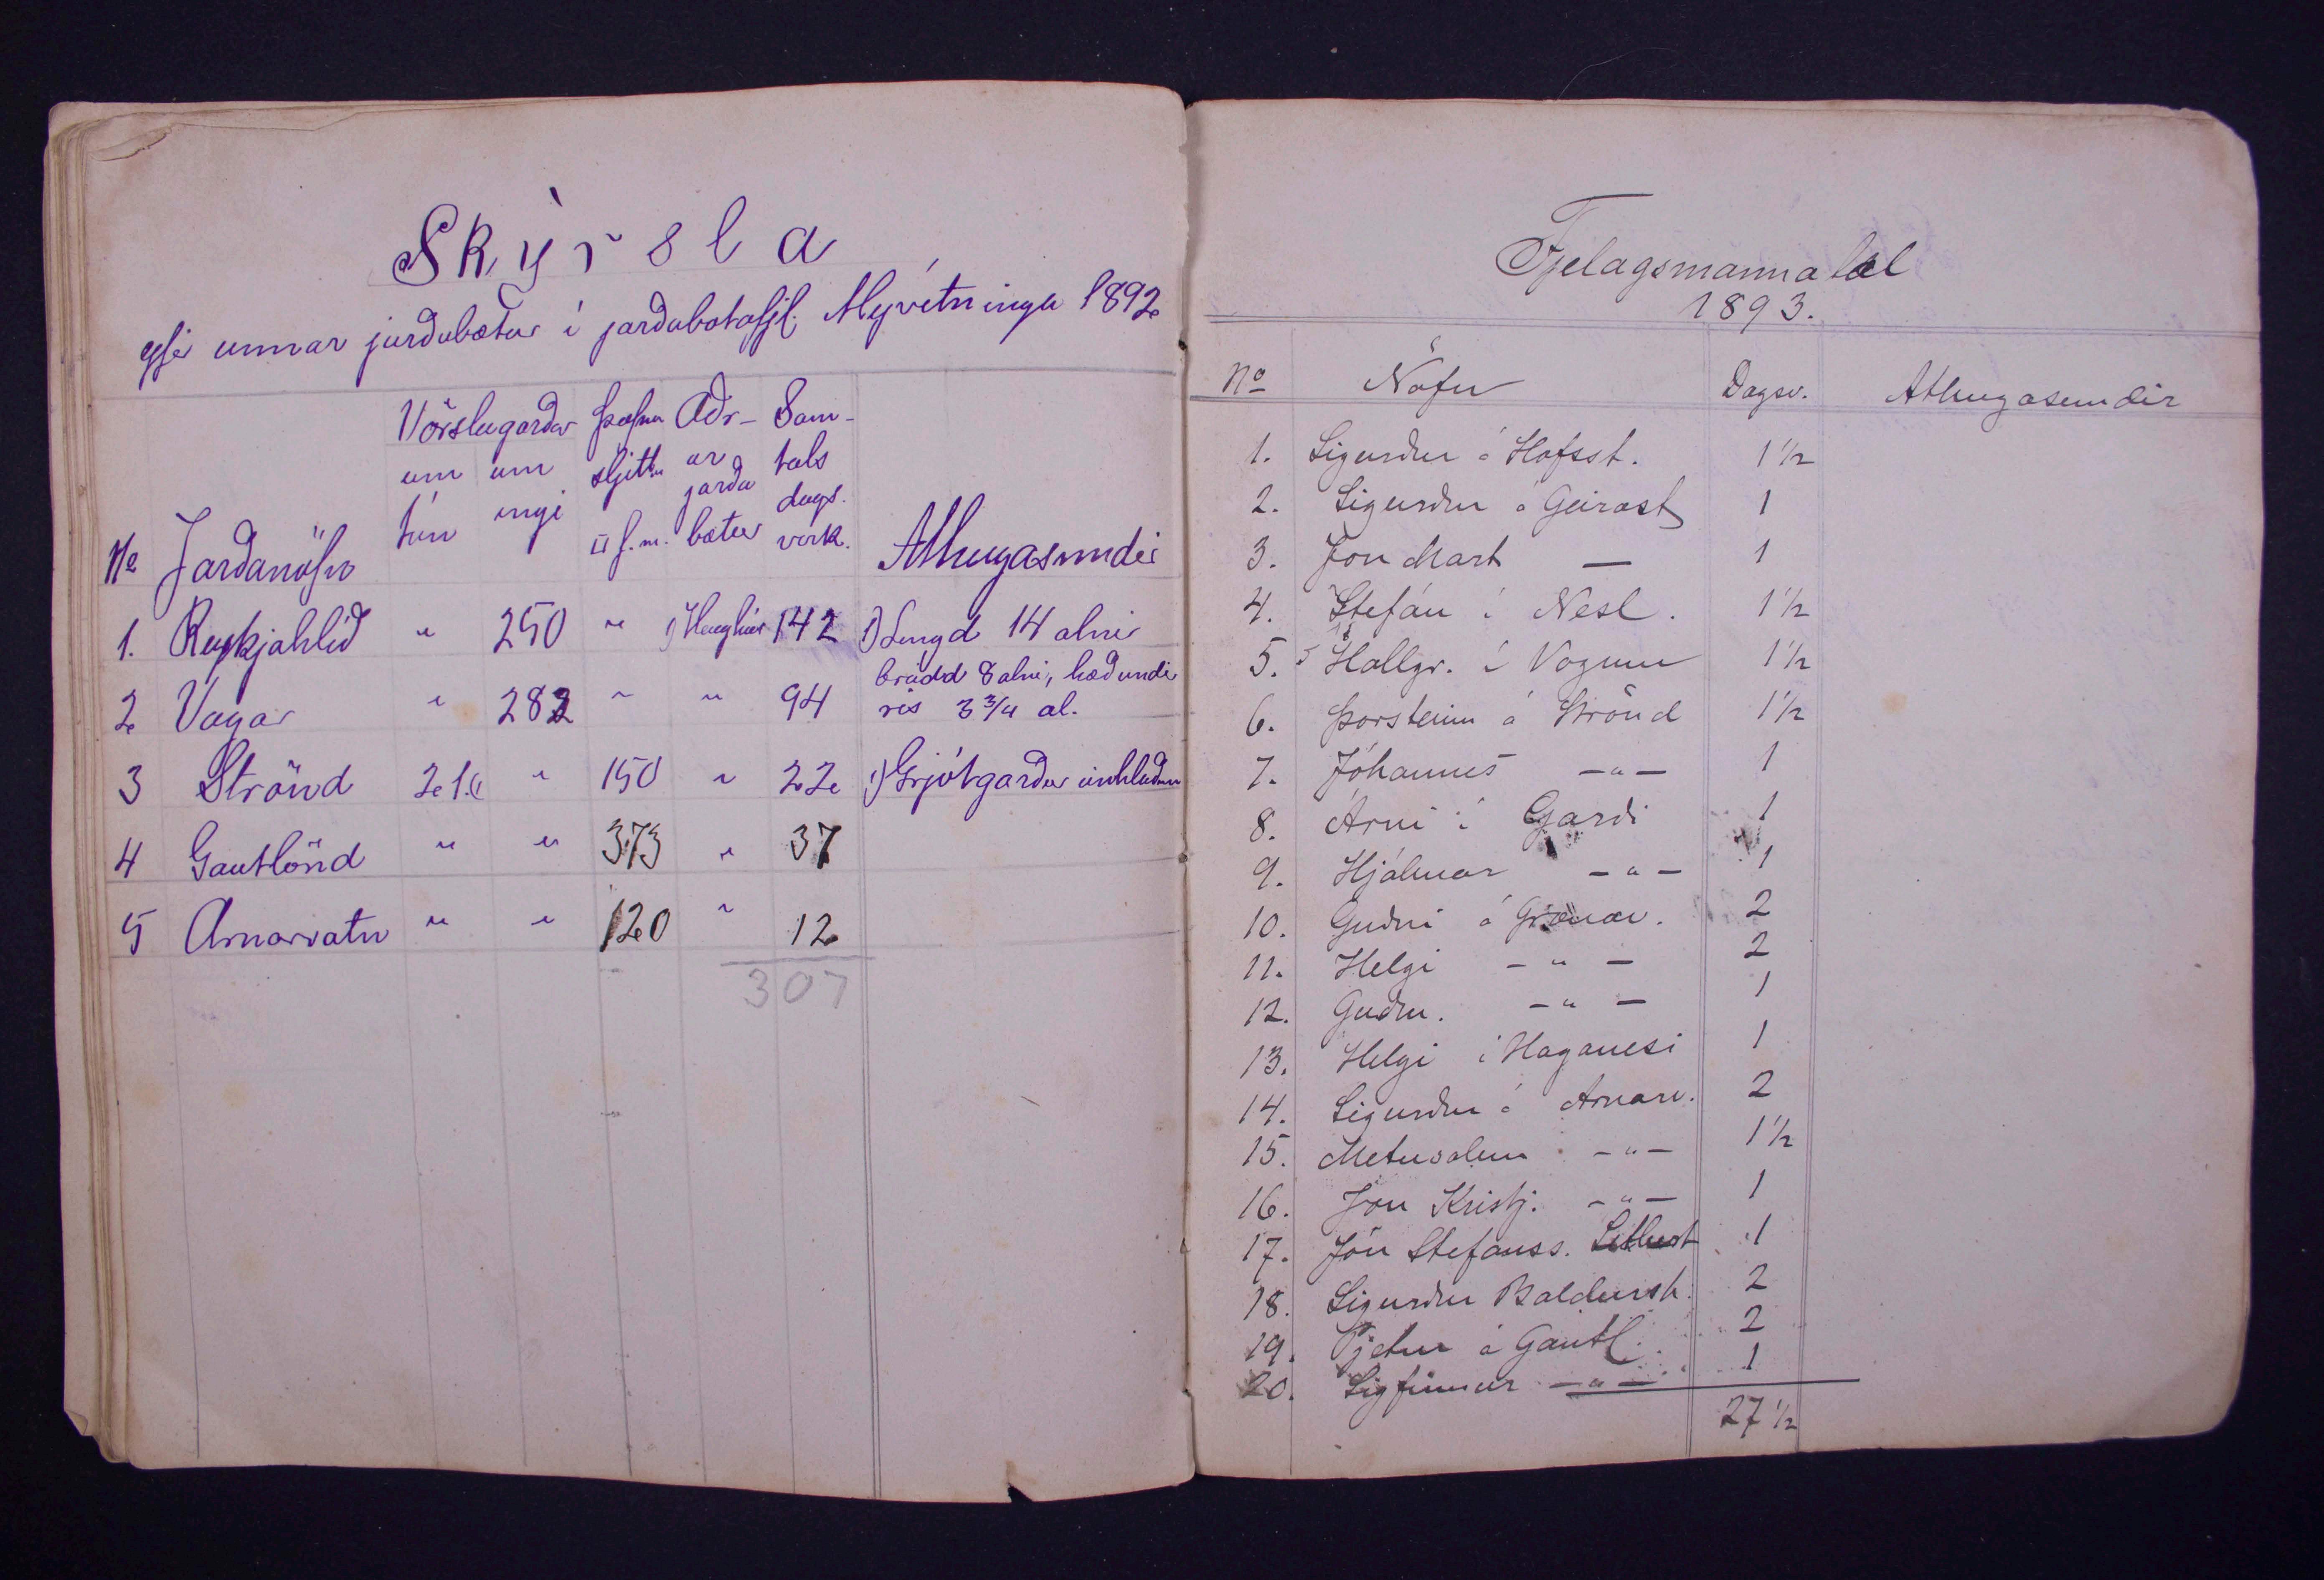 Skýrsla
yfir unnar jarðabætur í jarðabótafjl. Mývetninga 1892
No Jarðanöfn Vörslugarðar um tún um engi Þaksljettur □ f.m. Aðrar jarðabætur Samtals dagsverk. Athugasemdir
1. Reykjahlíð " 250 " 1) Heyhlaða 142 1) Lengd 14 alnir
breidd 8 alni, hæð undir
2 Vagar " 282 " " 94 ris 3 3/4 al.
3 Strönd 21.1) " 150 " 22 1) Grjótgarður einhlaðinn
4 Gautlönd " " 373 " 37
5 Arnarvatn " " 120 " 12
307
Fjelagsmannatal
1893.
No Nöfn Dagsv. Athugasemdir
1. Sigurður á Hofsst. 1 1/2
2. Sigurður á Geirast 1
3. Jón Mart — 1
4. Stefán í Nesl. 1 1/2
5. Hallgr. í Vogum 1 1/2
6. Þorsteinn á Strönd 1 1/2
7. Jóhannes -"- 1
8. Árni í Garði 1
9. Hjálmar -"- 1
10. Guðni á Grænav. 2
11. Helgi -"- 2
12. Guðm. -"- 1
13. Helgi í Haganesi 1
14. Sigurður á Arnarv. 2
15. Metusalem -"- 1 1/2
16. Jón Kristj. -"- 1
17. Jón Stefánss. 1
18. Sigurður Baldursh. 2
19. Pjetur á Gautl. 2
20. Sigfinnur -"- 1
27 1/2